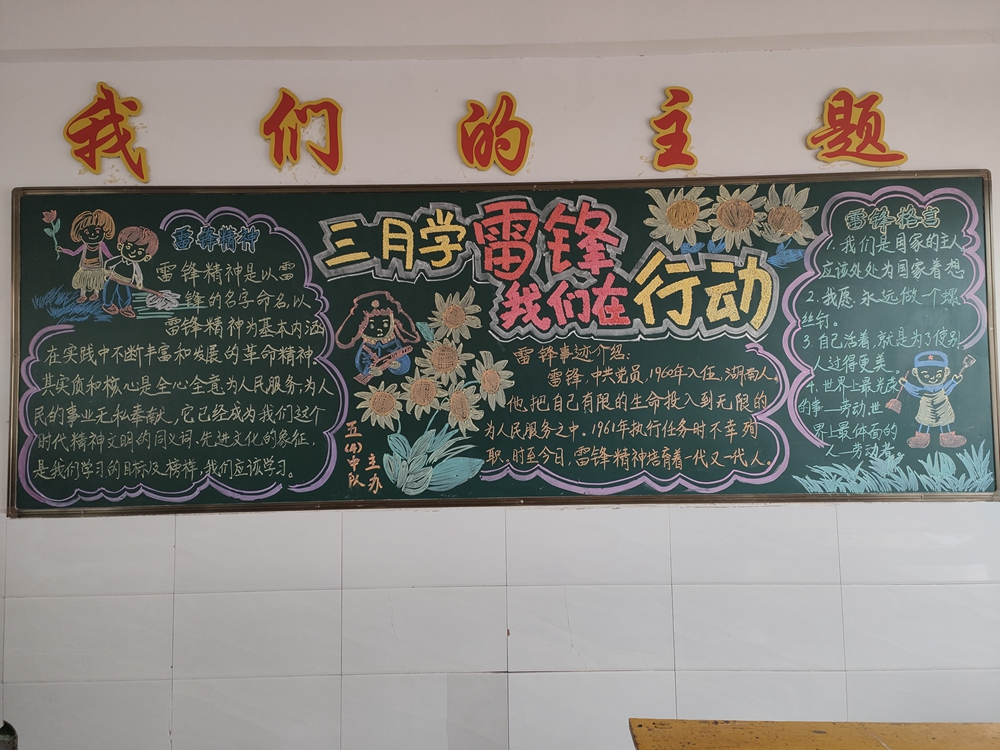 我们的主题
三月学雷锋
我们在行动
雷锋精神
雷锋精神是以雷
锋的名字命名,以
雷锋精神为基本内涵
在实践中不断丰富和发展的革命精神
其实质和核心是全心全意为人民服务为人
民的事业无私奉献。它已经成为我们这个
时代精神文明的同义词,先进文化的象征,
是我们学习的目标及榜样,我们应该学习。
五(4)中队
主办
雷锋事迹介绍:
雷锋,中共党员,1960年入伍,湖南人。
他把自己有限的生命投入到无限的
为人民服务之中。1961年执行任务时不幸殉
职,时至今日,雷锋精神培育着一代又一代人。
雷锋格言
1.我们是国家的主人
应该处处为国家着想
2.我愿永远做个螺
丝钉。
3自己活着,就是为了使别
人过得更美。
4.世界上最光荣
的事—劳动,世
界上最体面的
人—劳动者。